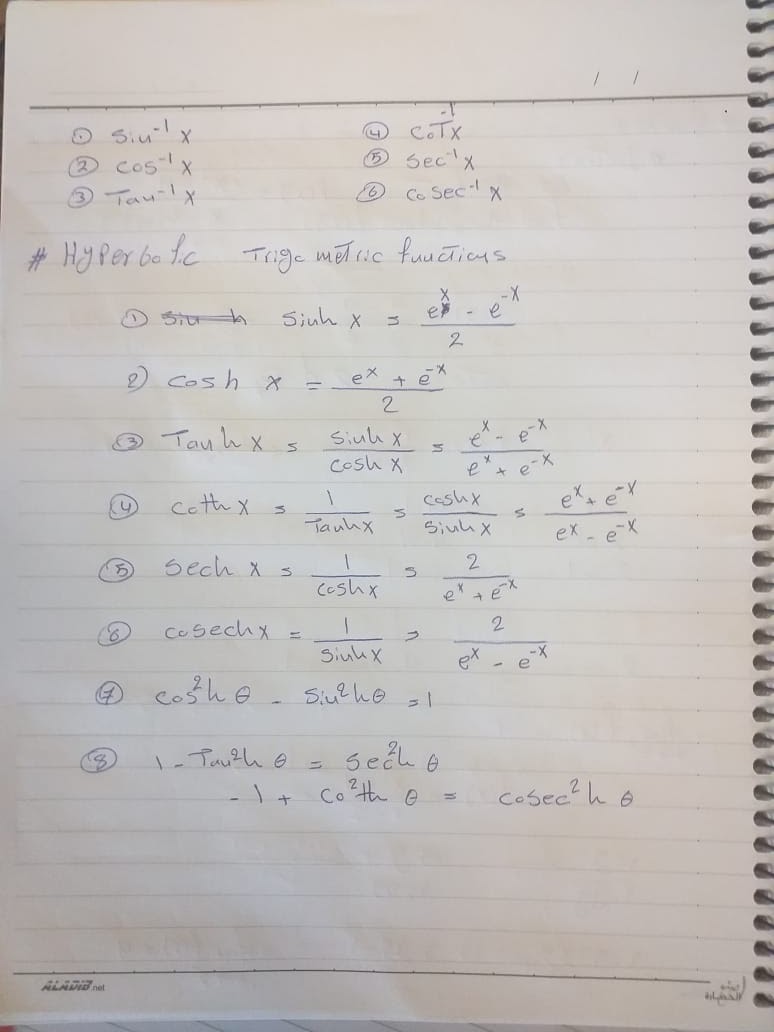 / /
① Sin⁻¹ x ④ CoT⁻¹x
② cos⁻¹ x ⑤ Sec⁻¹x
③ Tan⁻¹ x ⑥ coSec⁻¹ x
# HyPerbolic Trigometric functions
① S̶i̶n̶ ̶h̶ Sinh x = (eˣ - e⁻ˣ)/2
2) cosh x = (eˣ + e⁻ˣ)/2
③ Tanh x = sinh x/cosh x = (eˣ - e⁻ˣ)/(eˣ + e⁻ˣ)
④ coth x = 1/Tanhx = coshx/Sinhx = (eˣ + e⁻ˣ)/(eˣ - e⁻ˣ)
⑤ Sech x = 1/coshx = 2/(eˣ + e⁻ˣ)
⑥ cosechx = 1/Sinhx = 2/(eˣ - e⁻ˣ)
⑦ cos²h θ - Sin²hθ = 1
⑧ 1 - Tan²h θ = Sec²h θ
-1 + co²th θ = cosec²h θ
ALADIB.net